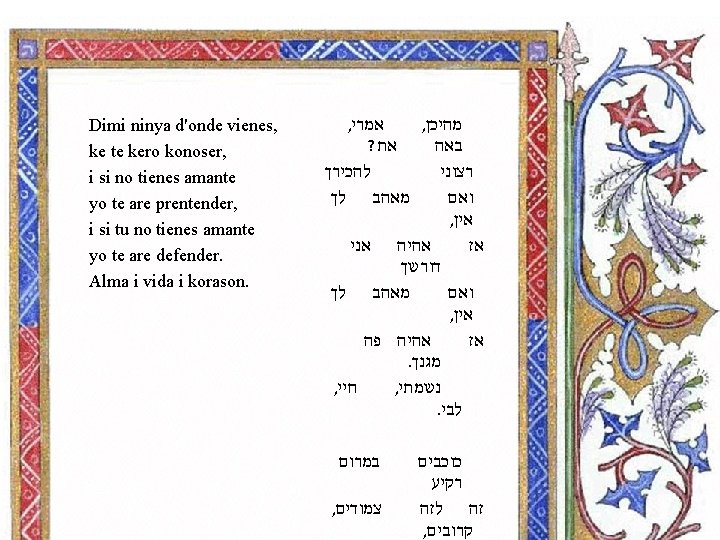 Dimi ninya d'onde vienes,
ke te kero konoser,
i si no tienes amante
yo te are prentender,
i si tu no tienes amante
yo te are defender.
Alma i vida i korason.
אמרי, מהיכן,
באה את?
רצוני להכירך
ואם מאהב לך
אין,
אז אהיה אני
דורשך
ואם מאהב לך
אין,
אז אהיה פה
מגנך.
נשמתי, חיי,
לבי.
כוכבים במרום
רקיע
זה לזה צמודים,
קרובים,